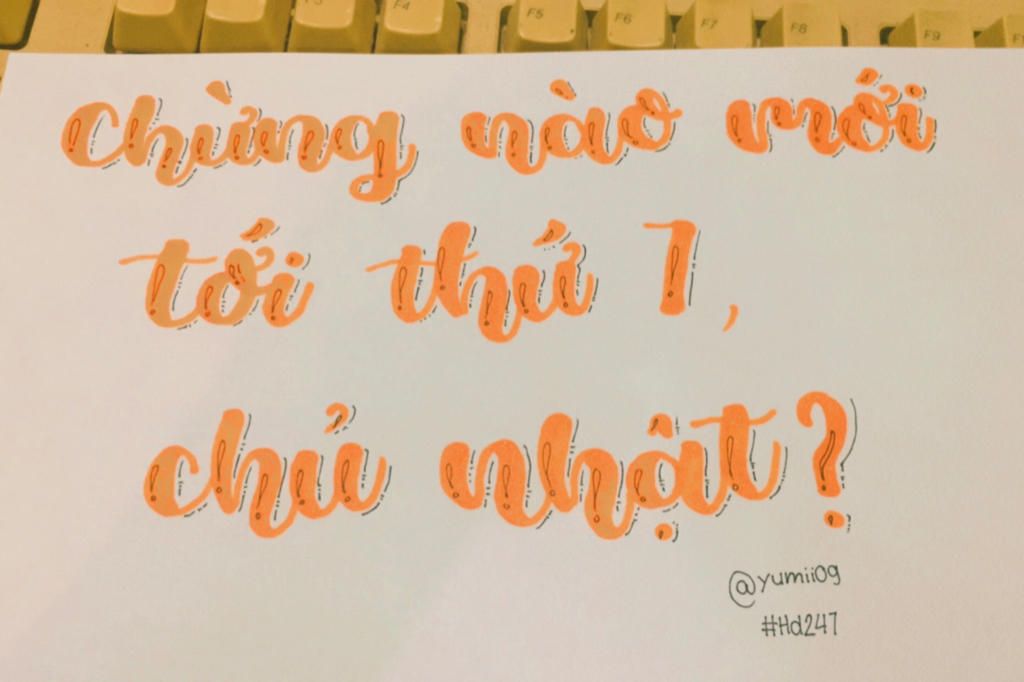 F3 F4 F5 F6 F7 F8 F9
Chừng nào mới
tới thứ 7,
chủ nhật?
@yumii0g
#Hd247